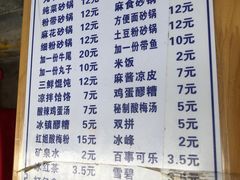 纯菜砂锅 12元
粉带砂锅 12元
麻花砂锅 12元
细粉砂锅 12元
加一份牛尾 20元
加一份丸子 10元
三鲜馄饨 12元
凉拌饸饹 7元
酸辣鸡蛋汤 7元
冰镇醪糟 5元
红姐酸梅粉 10元
矿泉水 2元
冰红茶 3.5元
麻食砂锅 12元
方便面砂锅 12元
土豆粉砂锅 12元
加一份带鱼 10元
米饭 2元
麻酱凉皮 7元
鸡蛋醪糟 7元
秘制酸梅汤 5元
双拼 5元
冰峰 2元
百事可乐 3.5元
雪碧 3.5元